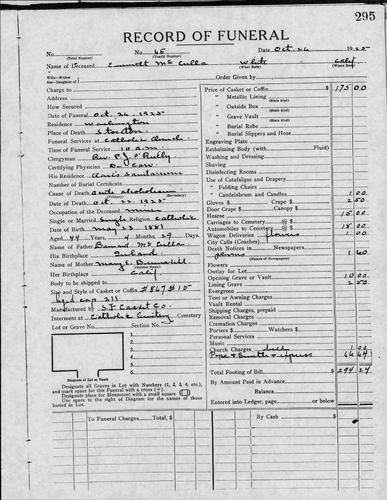 295
RECORD OF FUNERAL
No. No. 45 Date Oct. 26 1925
(Total Number) (Yearly Number)
Name of Deceased Emmett McCulla White Calif.
(What Race) (Where Born)
Wife—Widow
Son—Daughter of Order Given by
Charge to
Address
How Secured
Date of Funeral Oct. 26, 1925
Residence Washington
Place of Death Stockton
Funeral Services at Catholic Church
Time of Funeral Service 10 a.m.
Clergyman Rev. P. J. O'Reilly
Certifying Physician
His Residence
Number of Burial Certificate
Cause of Death alcoholism
(Primary) (Secondary)
Date of Death Oct. 22. 1925
Occupation of the Deceased miner
Single or Married Single Religion Catholic
Date of Birth May 23 1881
Aged 44 Years, 4 Months, 29 Days.
Name of Father McCulla
His Birthplace Ireland
Name of Mother Mary
(Maiden Name)
Her Birthplace Calif
Body to be shipped to
Size and Style of Casket or Coffin #847 #10
211
Manufactured by S.F. Casket Co.
Interment at Catholic Cemetery Cemetery
Lot or Grave No. Section No.
Diagram of Lot or Vault
Designate all Graves in Lot with Numbers (1, 2, 3, 4, etc.), and mark space for this Funeral with a cross (+). Designate place for Monument with a small square (□) Use space to the right of Diagram for the names of those buried in Lot.
Price of Casket or Coffin $ 175 00
" Metallic Lining
(State kind)
" Outside Box
(State kind)
" Grave Vault
(State kind)
" Burial Robe
(State kind)
" Burial Slippers and Hose
Engraving Plate
Embalming Body (with Fluid)
Washing and Dressing
Shaving
Disinfecting Rooms
Use of Catafalque and Drapery
" Folding Chairs
" Candelabrum and Candles 1 00
Gloves $ Crape $ 2 50
Door Crape $ Cap $
Hearse 15 00
Carriages to Cemetery @ $
Automobiles to Cemetery @ $ 18 00
Wagon Deliveries flowers 1 00
City Calls (Coaches)
Death Notices in Newspapers
1 60
(Names of Newspapers)
Flowers
Outlay for Lot
Opening Grave or Vault 10 00
Lining Grave 2 50
Evergreen
Tent or Awning Charges
Vault Rental
Shipping Charges, prepaid
Removal Charges
Cremation Charges
Porters $ Watchers $
Personal Services
Music
Church Charges bell 1 00
66 64
Total Footing of Bill $ 294 24
By Amount Paid in Advance
Balance
Entered into Ledger, page or below
To Funeral Charges, Total $ By Cash $